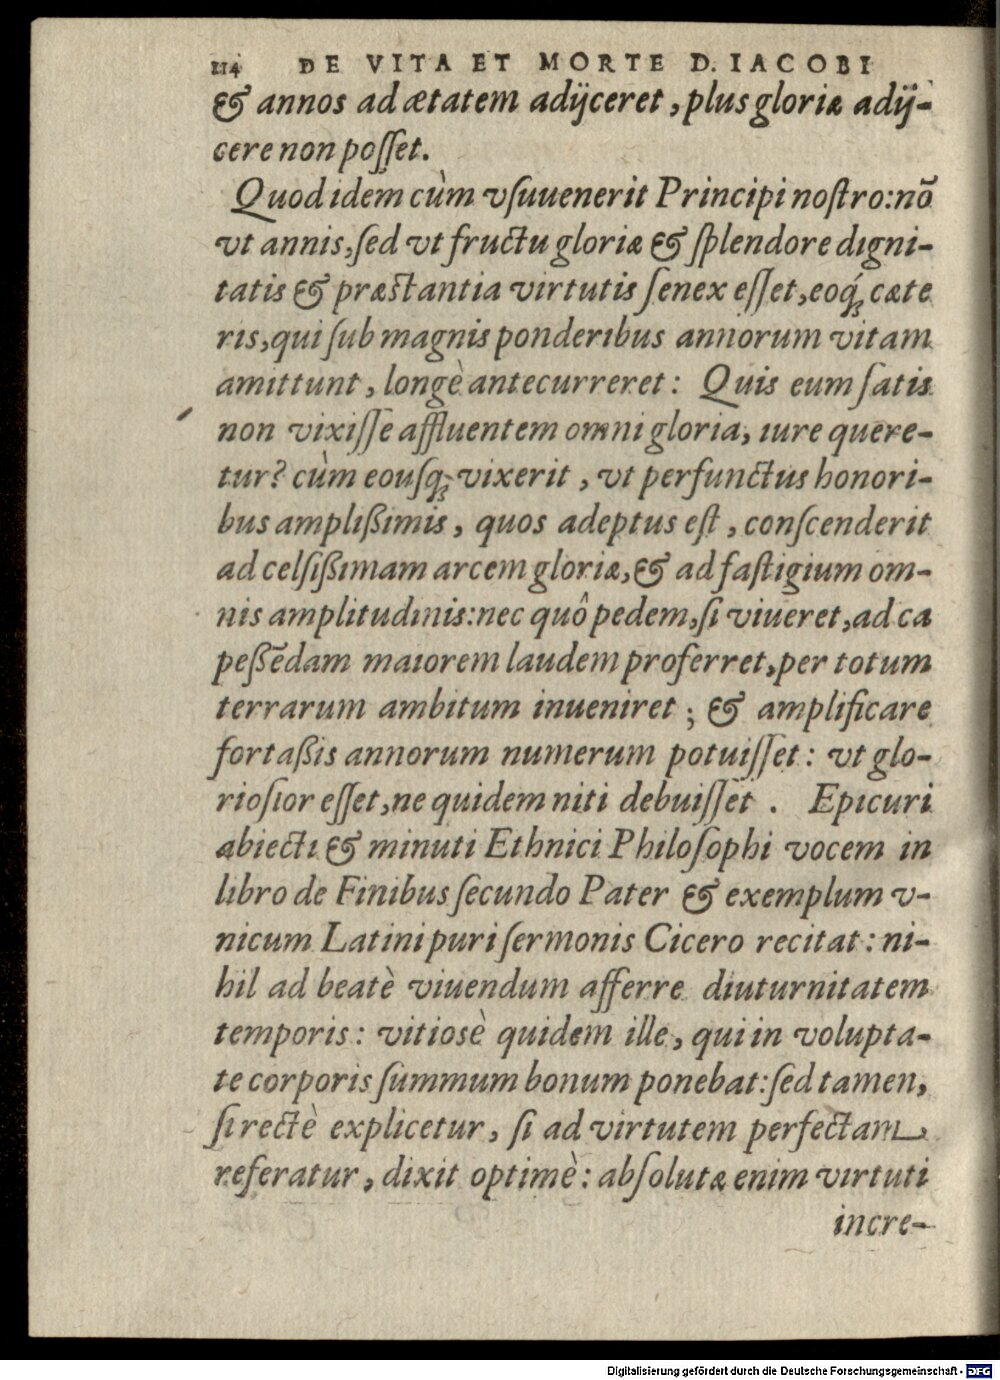 114 DE VITA ET MORTE D. IACOBI
& annos ad ætatem adijceret, plus gloriæ adij-
cere non posſet.
Quod idem cùm vſuuenerit Principi noſtro: nõ
vt annis, ſed vt fructu gloriæ & ſplendore digni-
tatis & præstantia virtutis ſenex eſſet, eoq́; cæte
ris, qui ſub magnis ponderibus annorum vitam
amittunt, longè antecurreret: Quis eum ſatis
non vixiſſe affluentem omni gloria, iure quere-
tur? cùm eouſq; vixerit, vt perfunctus honori-
bus amplißimis, quos adeptus eſt, conſcenderit
ad celſißimam arcem gloriæ, & ad faſtigium om-
nis amplitudinis: nec quô pedem, ſi viueret, ad ca
peßẽdam maiorem laudem proferret, per totum
terrarum ambitum inueniret; & amplificare
fortaßis annorum numerum potuiſſet: vt glo-
rioſior eſſet, ne quidem niti debuiſſet. Epicuri
abiecti & minuti Ethnici Philoſophi vocem in
libro de Finibus ſecundo Pater & exemplum v-
nicum Latini puri ſermonis Cicero recitat: ni-
hil ad beatè viuendum afferre diuturnitatem
temporis: vitiosè quidem ille, qui in volupta-
te corporis ſummum bonum ponebat: ſed tamen,
ſi rectè explicetur, ſi ad virtutem perfectam
referatur, dixit optimè: abſolutæ enim virtuti
incre-
Digitalisierung gefördert durch die Deutsche Forschungsgemeinschaft - DFG